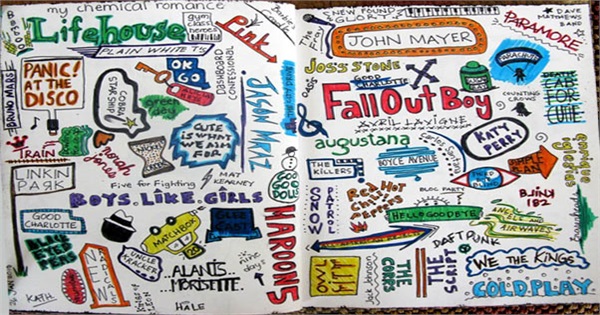 my chemical romance
gym
class
heroes
Lifehouse
PLAIN WHITE T'S
Pink
DASHBOARD
CONFESSIONAL
BRUNO MARS
PANIC!
AT THE
DISCO
STARSHIP
COBRA
OK
GO
green
day
JASON MRAZ
CUTE IS WHAT
WE AIM
FOR
TRAIN
norah
jones
LINKIN
PARK
Five for Fighting
MAT
KEARNEY
GOO
GOO
DOLLS
BOYS.LIKE.GIRLS
GOOD
CHARLOTTE
MATCHBOX
20
BLUE
OCTOBER
MAROON 5
UNCLE
KRACKER
ALANIS
MORISETTE
KINGS OF
LEON
KATH
HALE
NEW FOUND
GLORY
The Fray
JOHN MAYER
PARAMORE
DAVE
MATTHEWS
BAND
OASIS
JOSS STONE
GOOD
CHARLOTTE
PARACHUTE
COUNTING
CROWS
DEATH
CAB
FOR
CUTIE
Fall Out Boy
AVRIL LAVIGNE
augustana
KATY
PERRY
THE
KILLERS
BOYCE AVENUE
SIMPLE
PLAN
SNOW
PATROL
Red Hot
Chili
Peppers
BLOG PARTY
BLINK
182
HELLOGOODBYE
ANGELS AND
AIRWAVES
DAFT PUNK
Jack Johnson
THE
CORRS
THE
SCRIPT
WE THE KINGS
COLDPLAY